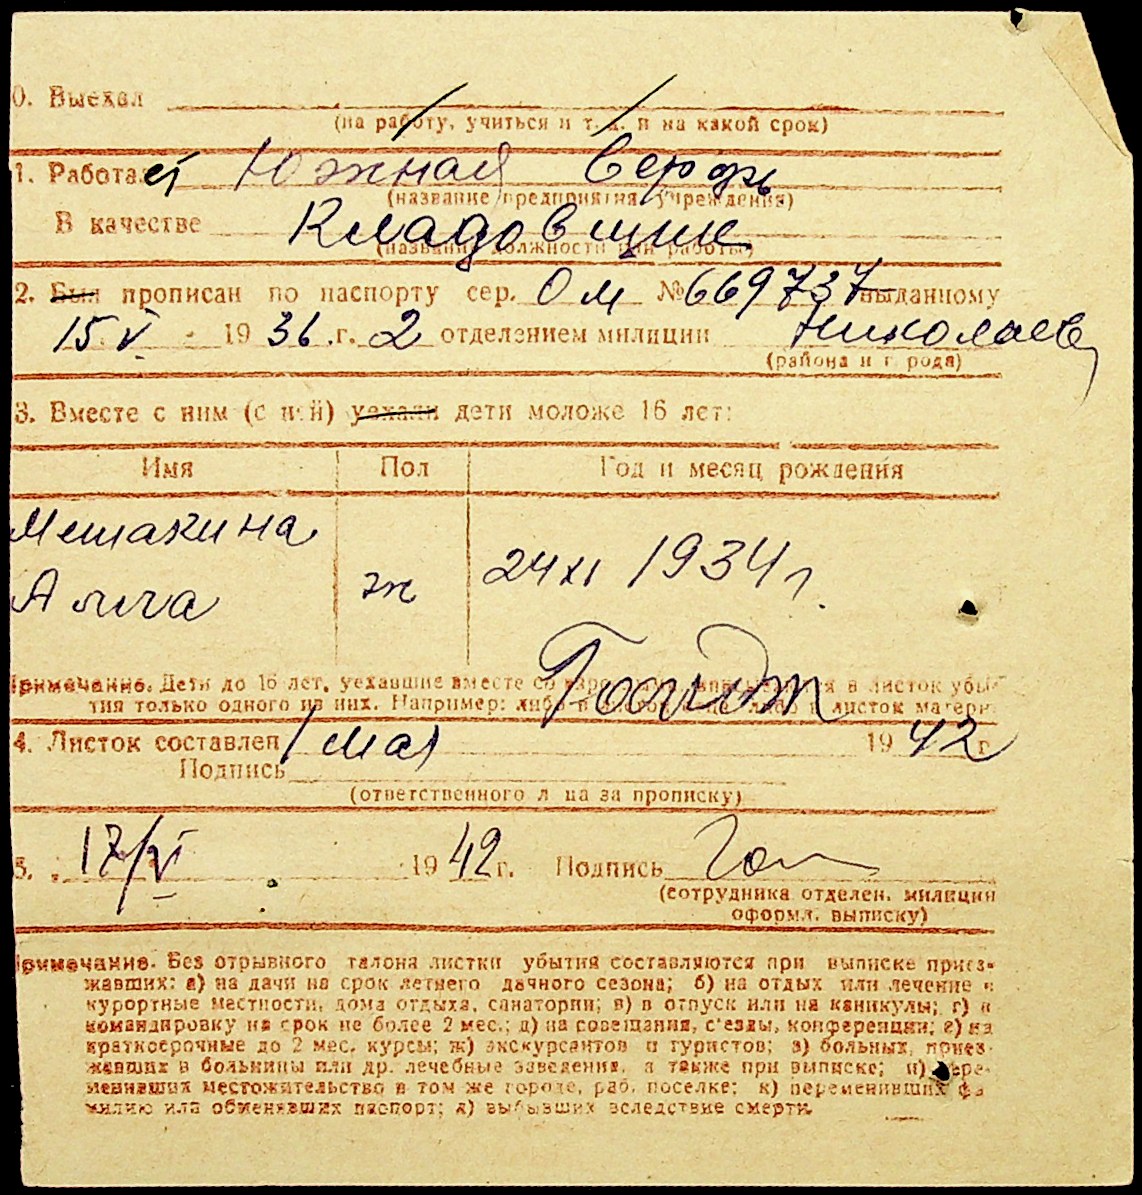 0. Выехал
(на работу, учиться и т. д. и на какой срок)
1. Работает Южная верфь
(название предприятия, учреждения)
В качестве Кладовщик
(название должности или работы)
2. Был прописан по паспорту сер. ОМ № 669737 выданному
15 V 1936 г. 2 отделением милиции Николаев
(района и города)
3. Вместе с ним (с ней) уехали дети моложе 16 лет:
Имя Пол Год и месяц рождения
Мешакина
Алла ж 24 XI 1934 г.
Примечание. Дети до 16 лет, уехавшие вместе со в листок убы-
тия только одного из них. Например: либо в листок матери.
4. Листок составлен 1 мая 1942 г
Подпись
(ответственного л ца за прописку)
5. 17/VI 1942 г. Подпись
(сотрудника отделен. милиции
оформл. выписку)
Примечание. Без отрывного талона листки убытия составляются при выписке приез-
жавших: а) на дачи на срок летнего дачного сезона; б) на отдых или лечение в
курортные местности, дома отдыха, санатории; в) в отпуск или на каникулы; г) в
командировку на срок не более 2 мес.; д) на совещания, с'езды, конференции; е) на
краткосрочные до 2 мес. курсы; ж) экскурсантов и туристов; з) больных, приез-
жавших в больницы или др. лечебные заведения, а также при выписке; и) пере-
менивших местожительство в том же городе, раб. поселке; к) переменивших фа
милию или обменявших паспорт; л) выбывших вследствие смерти.